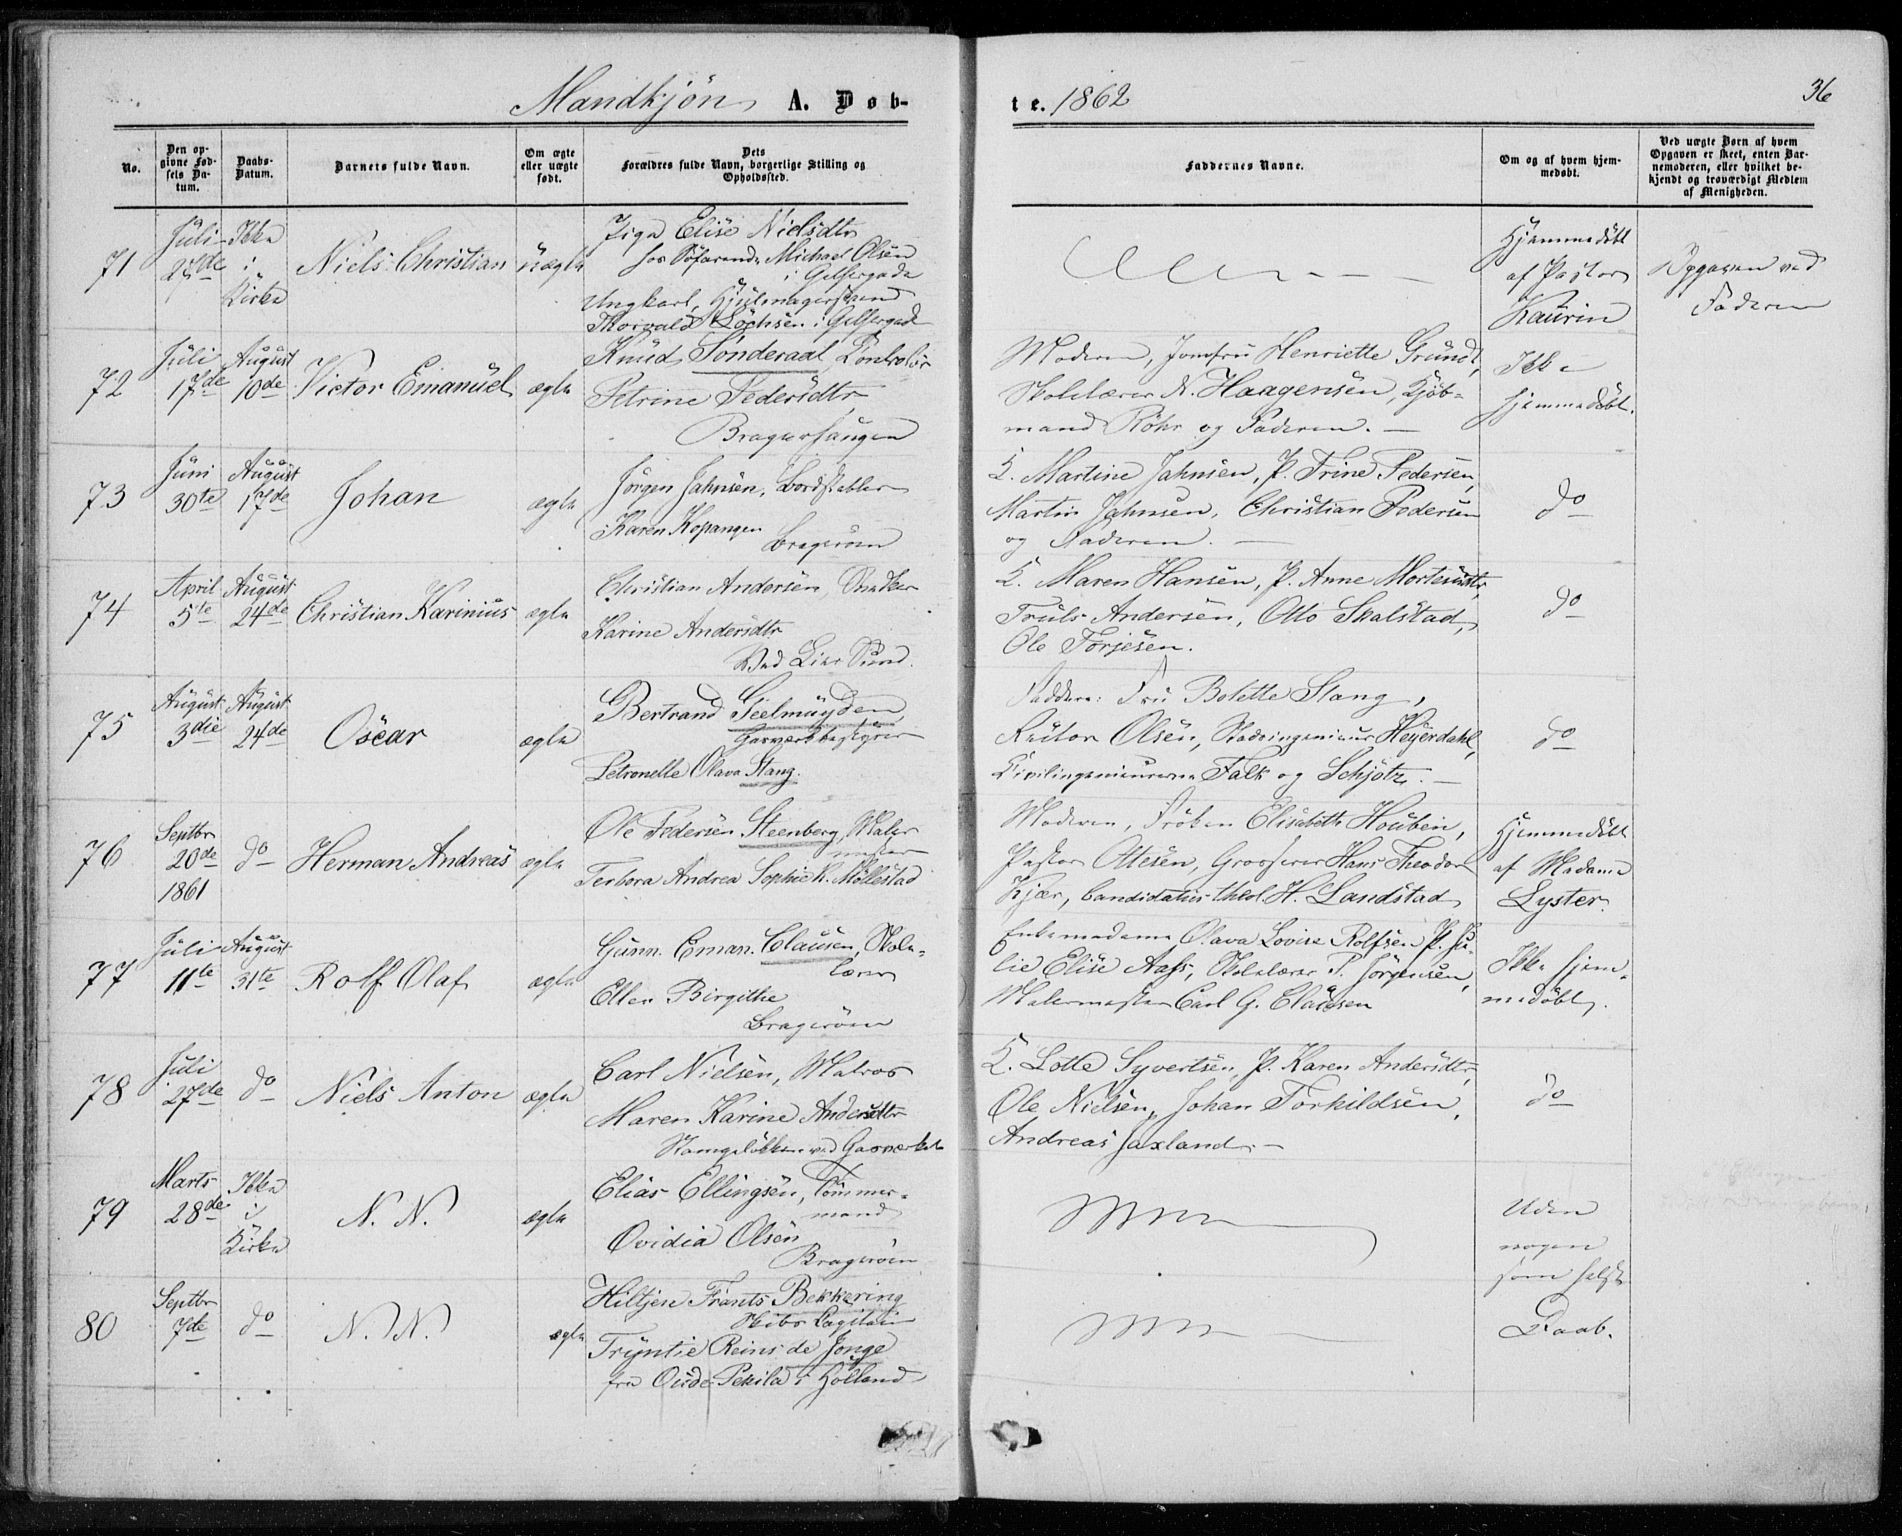 Mandkjøn A. Døb-
te. 1862
36
No.
Den op-
givne Fød-
sels Da-
tum.
Daabs-
Datum.
Barnets fulde Navn.
Om ægte
eller uægte
født.
Dets
Forældres fulde Navn, borgerlige Stilling og
Opholdssted.
Faddernes Navne.
Om og af hvem hjem-
medøbt.
Ved uægte Børn af hvem
Opgaven er skeet, enten Bar-
nemoderen, eller hvilket be-
kjendt og troværdigt Medlem
af Menigheden.
71
Juli
Ikke
i
Kirke
Niels Christian
uægte
Pige Elise Nielsdtr
hos Søfarende Michael Olsen
i Gelfergade
Ungkarl, Hjulmagersvend
Thorvald Løchsen i Gelfergade
Hjemmedøbt
af Pastor
Kaurin
Opgaven ved
Faderen
72
Juli
17de
August
10de
Victor Emanuel
ægte
Knud Sønderaal, Controlør
Petrine Pedersdtr
Bragerhaugen
Moderen, Jomfru Henriette Grundt,
Skolelærer N. Haagensen, Kjøb-
mand Røhr og Faderen.
Ikke
hjemmedøbt.
73
Juni
30te
August
17de
Johan
ægte
Jørgen Jahnsen, Bordstabler
Karen Kopangen
Bragerøen
K. Martine Jahnsen, P. Trine Pedersen,
Martin Jahnsen, Christian Pedersen
og Faderen.
do
74
April
5te
August
24de
Christian Karinius
ægte
Christian Andersen, Snedker
Karine Andersdtr
Ved Lier Sund.
K. Maren Hansen, P. Anne Mortensdtr,
Truls Andersen, Otto Skalstad,
Ole Torjesen.
do
75
August
3die
August
24de
Oscar
ægte
Bertrand Geelmuyden,
Gasværksbestyrer
Petronelle Olava Stang.
Faddere: Fru Bolette Stang,
Rector Olsen, Stadsingenieur Heyerdahl,
Civilingenieurerne Falk og Schjøtz.
do
76
Septbr
20de
1861
do
Herman Andreas
ægte
Ole Pedersen Steenberg, Maler
mester
Terbora Andrea Sophie K. Møllestad
Moderen, Frøken Elisabeth Houben,
Pastor Ottesen, Grosserer Hans Theodor
Kjær, Candidatus theol. H. Landstad
Hjemmedøbt
af Madame
Lyster.
77
Juli
11te
August
31te
Rolf Olaf
ægte
Gunn. Eman. Clausen, Skole-
lærer
Ellen Birgithe
Bragerøen
Enkemadame Olava Lovise Rolfsen P. Ju-
lie Elise Aass, Skolelærer P. Jørgensen,
Malermester Carl G. Clausen
Ikke hjem-
medøbt.
78
Juli
27de
do
Niels Anton
ægte
Carl Nielsen, Matros
Maren Karine Andersdtr
Stangeløkken ved Gasværket
K. Lotte Syvertsen, P. Karen Andersdtr,
Ole Nielsen, Johan Torkildsen,
Andreas Jaxland.
do
79
Marts
28de
Ikke
i
Kirke
N. N.
ægte
Elias Ellingsen, Tømmer-
mand
Ovidia Olsen
Bragerøen
Uden
nogen
som helst
Daab.
80
Septbr
7de
do
N. N.
ægte
Hiltjen Frants Bekkering
Skibs Captain
Tryntie Reins de Jonge
fra Oude Pekila i Holland